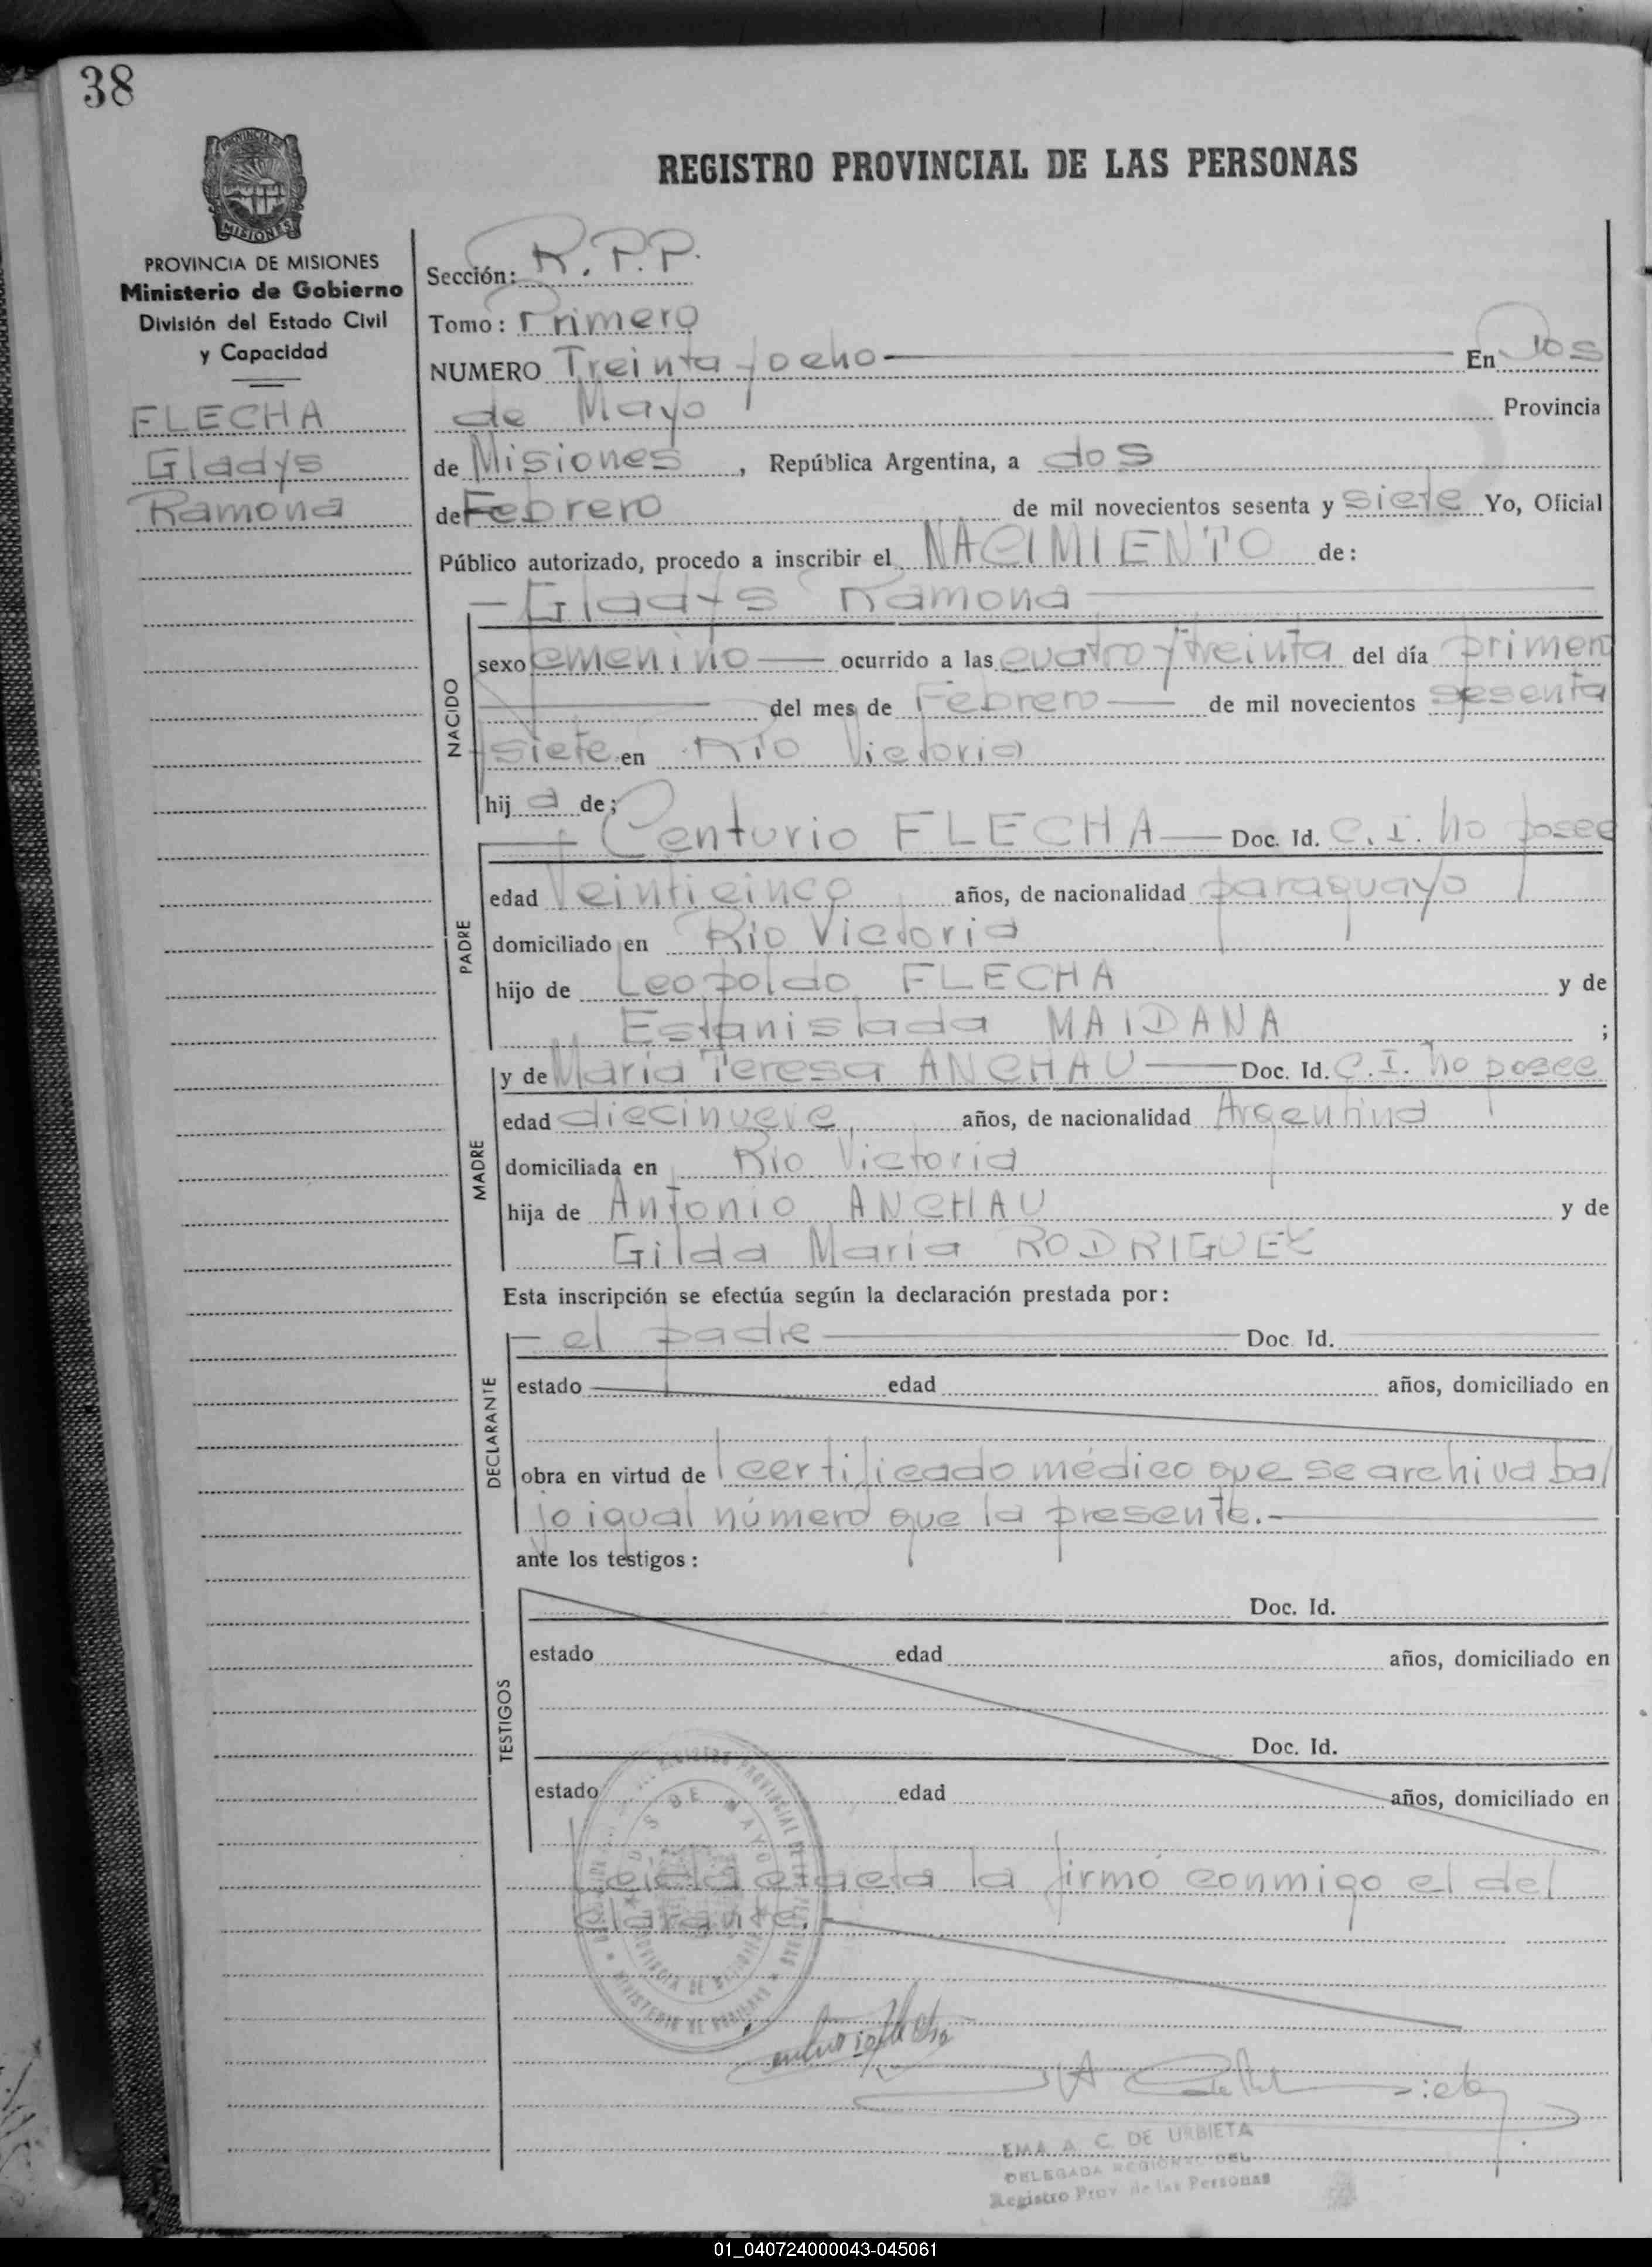 38
REGISTRO PROVINCIAL DE LAS PERSONAS
PROVINCIA DE MISIONES
MISIONES
PROVINCIA DE MISIONES
Ministerio de Gobierno
División del Estado Civil
y Capacidad
FLECHA
Gladys
Ramona
Sección: R.P.P.
Tomo: Primero
NUMERO Treinta y ocho En Dos
de Mayo Provincia
de Misiones, República Argentina, a dos
de Febrero de mil novecientos sesenta y siete Yo, Oficial
Público autorizado, procedo a inscribir el NACIMIENTO de:
Gladys Ramona
NACIDO
sexo femenino ocurrido a las cuatro y treinta del día primero
del mes de Febrero de mil novecientos sesenta
y siete en Río Victoria
hija de;
PADRE
Centurio FLECHA Doc. Id. C.I. no posee
edad Veinticinco años, de nacionalidad paraguayo
domiciliado en Río Victoria
hijo de Leopoldo FLECHA y de
Estanislada MAIDANA ;
MADRE
y de María Teresa ANCHAU Doc. Id. C.I. no posee
edad diecinueve años, de nacionalidad Argentina
domiciliada en Río Victoria
hija de Antonio ANCHAU y de
Gilda María RODRIGUEZ
Esta inscripción se efectúa según la declaración prestada por:
DECLARANTE
el padre Doc. Id.
estado edad años, domiciliado en
obra en virtud de certificado médico que se archiva ba/
jo igual número que la presente.-
ante los testigos:
TESTIGOS
Doc. Id.
estado edad años, domiciliado en
Doc. Id.
estado edad años, domiciliado en
Leída el acta la firmó conmigo el de/
clarante.
REGISTRO PROVINCIAL DE LAS PERSONAS
DOS DE MAYO
PROVINCIA DE MISIONES
MINISTERIO DE GOBIERNO
EMA A. C. DE URBIETA
DELEGADA REGIONAL DEL
Registro Prov. de las Personas
01_040724000043-045061